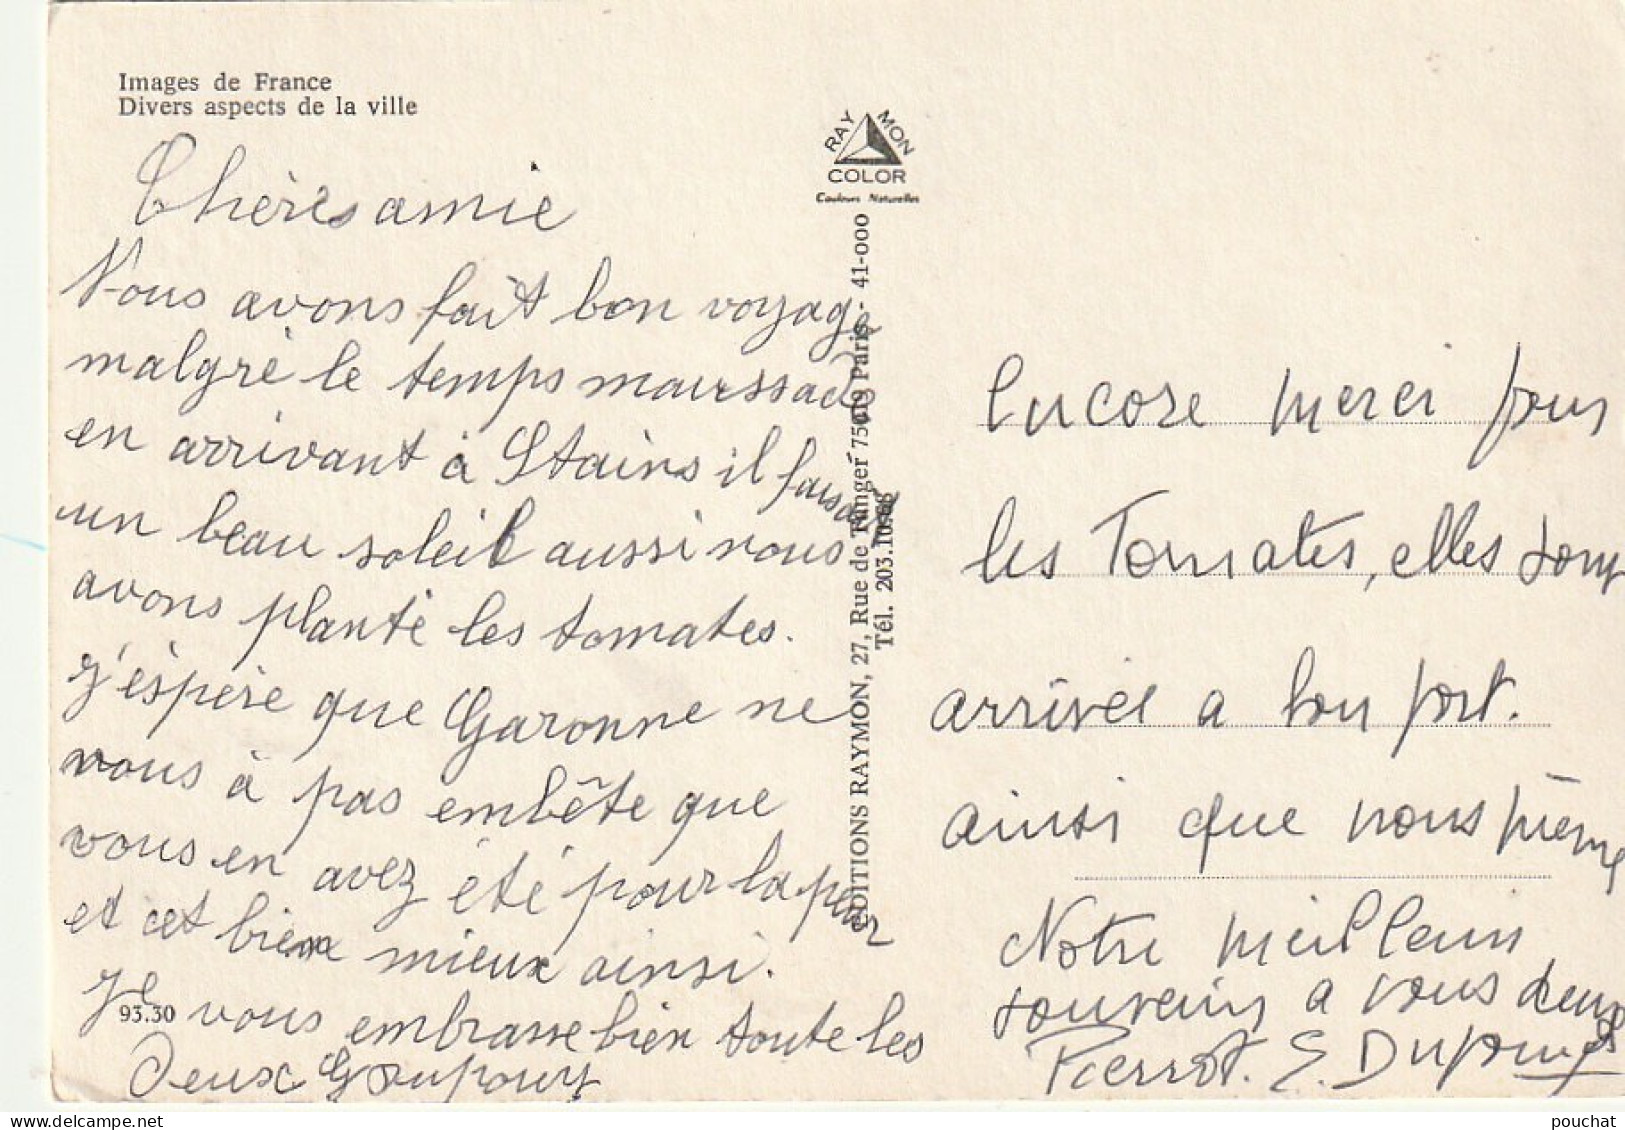 Images de France
Divers aspects de la ville
RAYMON
COLOR
Couleurs Naturelles
EDITIONS RAYMON, 27, Rue de Tanger 75019 Paris - 41-000
Tél. 203.10.68
Chères amie
Nous avons fait bon voyage
malgré le temps maussade
en arrivant à Stains il faisait
un beau soleil aussi nous
avons planté les tomates.
j'éspère que Garonne ne
vous à pas embête que
vous en avez été pour la peur
et cet bien mieux ainsi.
Je vous embrasse bien toute les
Deux
93.30
Encore merci pour
les Tomates, elles sont
arrivée a bon port.
ainsi que nous même
Notre meilleurs
souvenirs a vous deux
Pierrot. E. Dupouy
pouchat